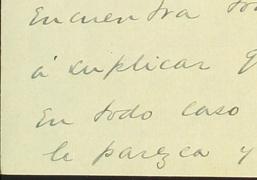 Encuentra
á suplicar q
En todo caso
le parezca y